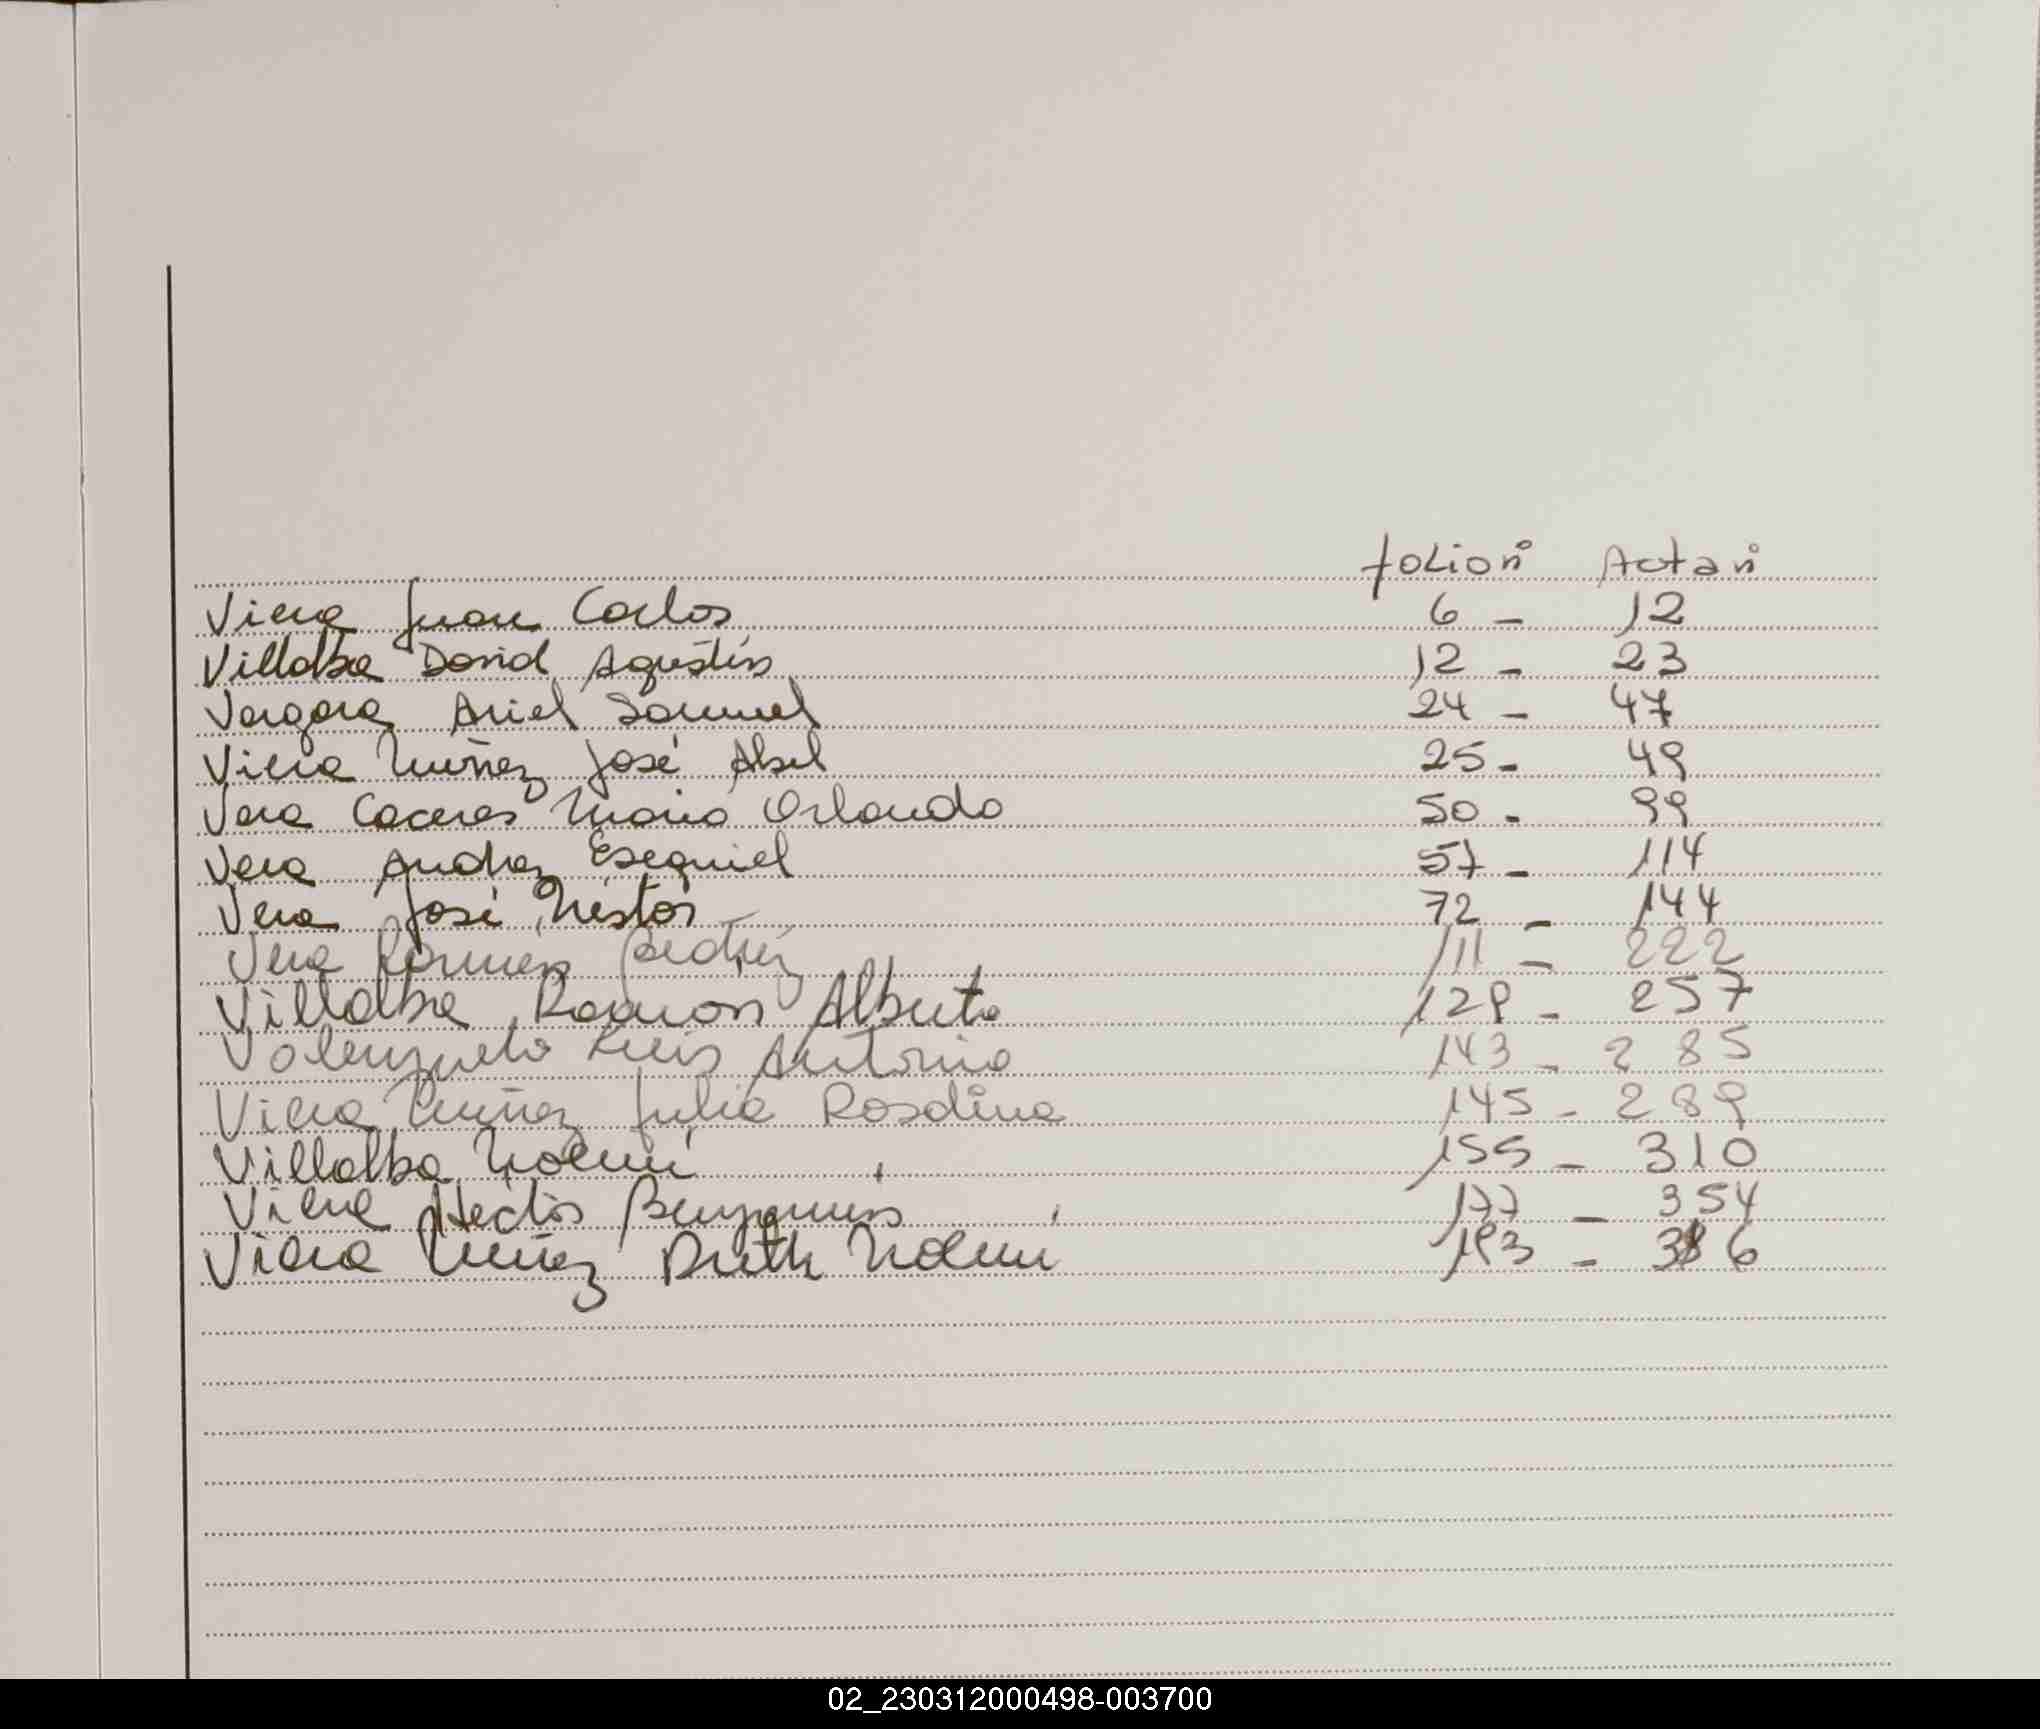 folio nº Acta nº
Viera Juan Carlos 6 - 12
Villalba David Agustín 12 - 23
Vergara Ariel Samuel 24 - 47
Viera Nuñez José Abel 25 - 49
Vera Caceres Mario Orlando 50 - 99
Vera Andrez Esequiel 57 - 114
Vera José Néstor 72 - 144
Vera Carmen Beatriz 111 - 222
Villalba Ramón Alberto 129 - 257
Valenzuela Luis Antonio 143 - 285
Viera Nuñez Julia Rosalina 145 - 289
Villalba Noemí 155 - 310
Viera Hector Benjamin 177 - 354
Viera Nuñez Ruth Noemí 193 - 386
02_230312000498-003700